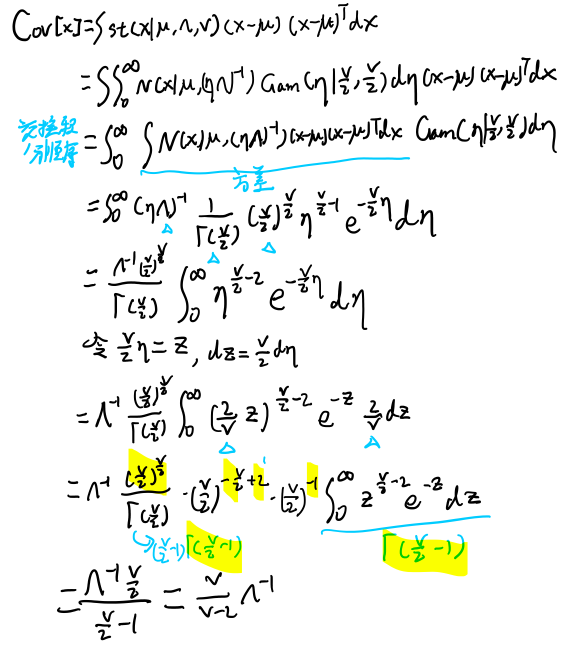 Cov[x]=∫st(x|μ,Λ,ν)(x-μ)(x-μ)ᵀdx
=∫∫₀^∞ N(x|μ,(ηΛ)⁻¹) Gam(η|ν/2,ν/2)dη(x-μ)(x-μ)ᵀdx
=∫₀^∞ ∫N(x|μ,(ηΛ)⁻¹)(x-μ)(x-μ)ᵀdx Gam(η|ν/2,ν/2)dη
方差
=∫₀^∞ (ηΛ)⁻¹ 1/Γ(ν/2) (ν/2)^(ν/2) η^(ν/2-1) e^(-ν/2 η) dη
= Λ⁻¹(ν/2)^(ν/2)/Γ(ν/2) ∫₀^∞ η^(ν/2-2) e^(-ν/2 η) dη
令 ν/2 η=z, dz=ν/2 dη
=Λ⁻¹ (ν/2)^(ν/2)/Γ(ν/2) ∫₀^∞ (2/ν z)^(ν/2-2) e^(-z) 2/ν dz
=Λ⁻¹ (ν/2)^(ν/2)/Γ(ν/2) ·(ν/2)^(-ν/2+2) ·(ν/2)⁻¹ ∫₀^∞ z^(ν/2-2) e^(-z) dz
(ν/2-1)Γ(ν/2-1) Γ(ν/2-1)
= Λ⁻¹ ν/2 / (ν/2-1) = ν/(ν-2) Λ⁻¹